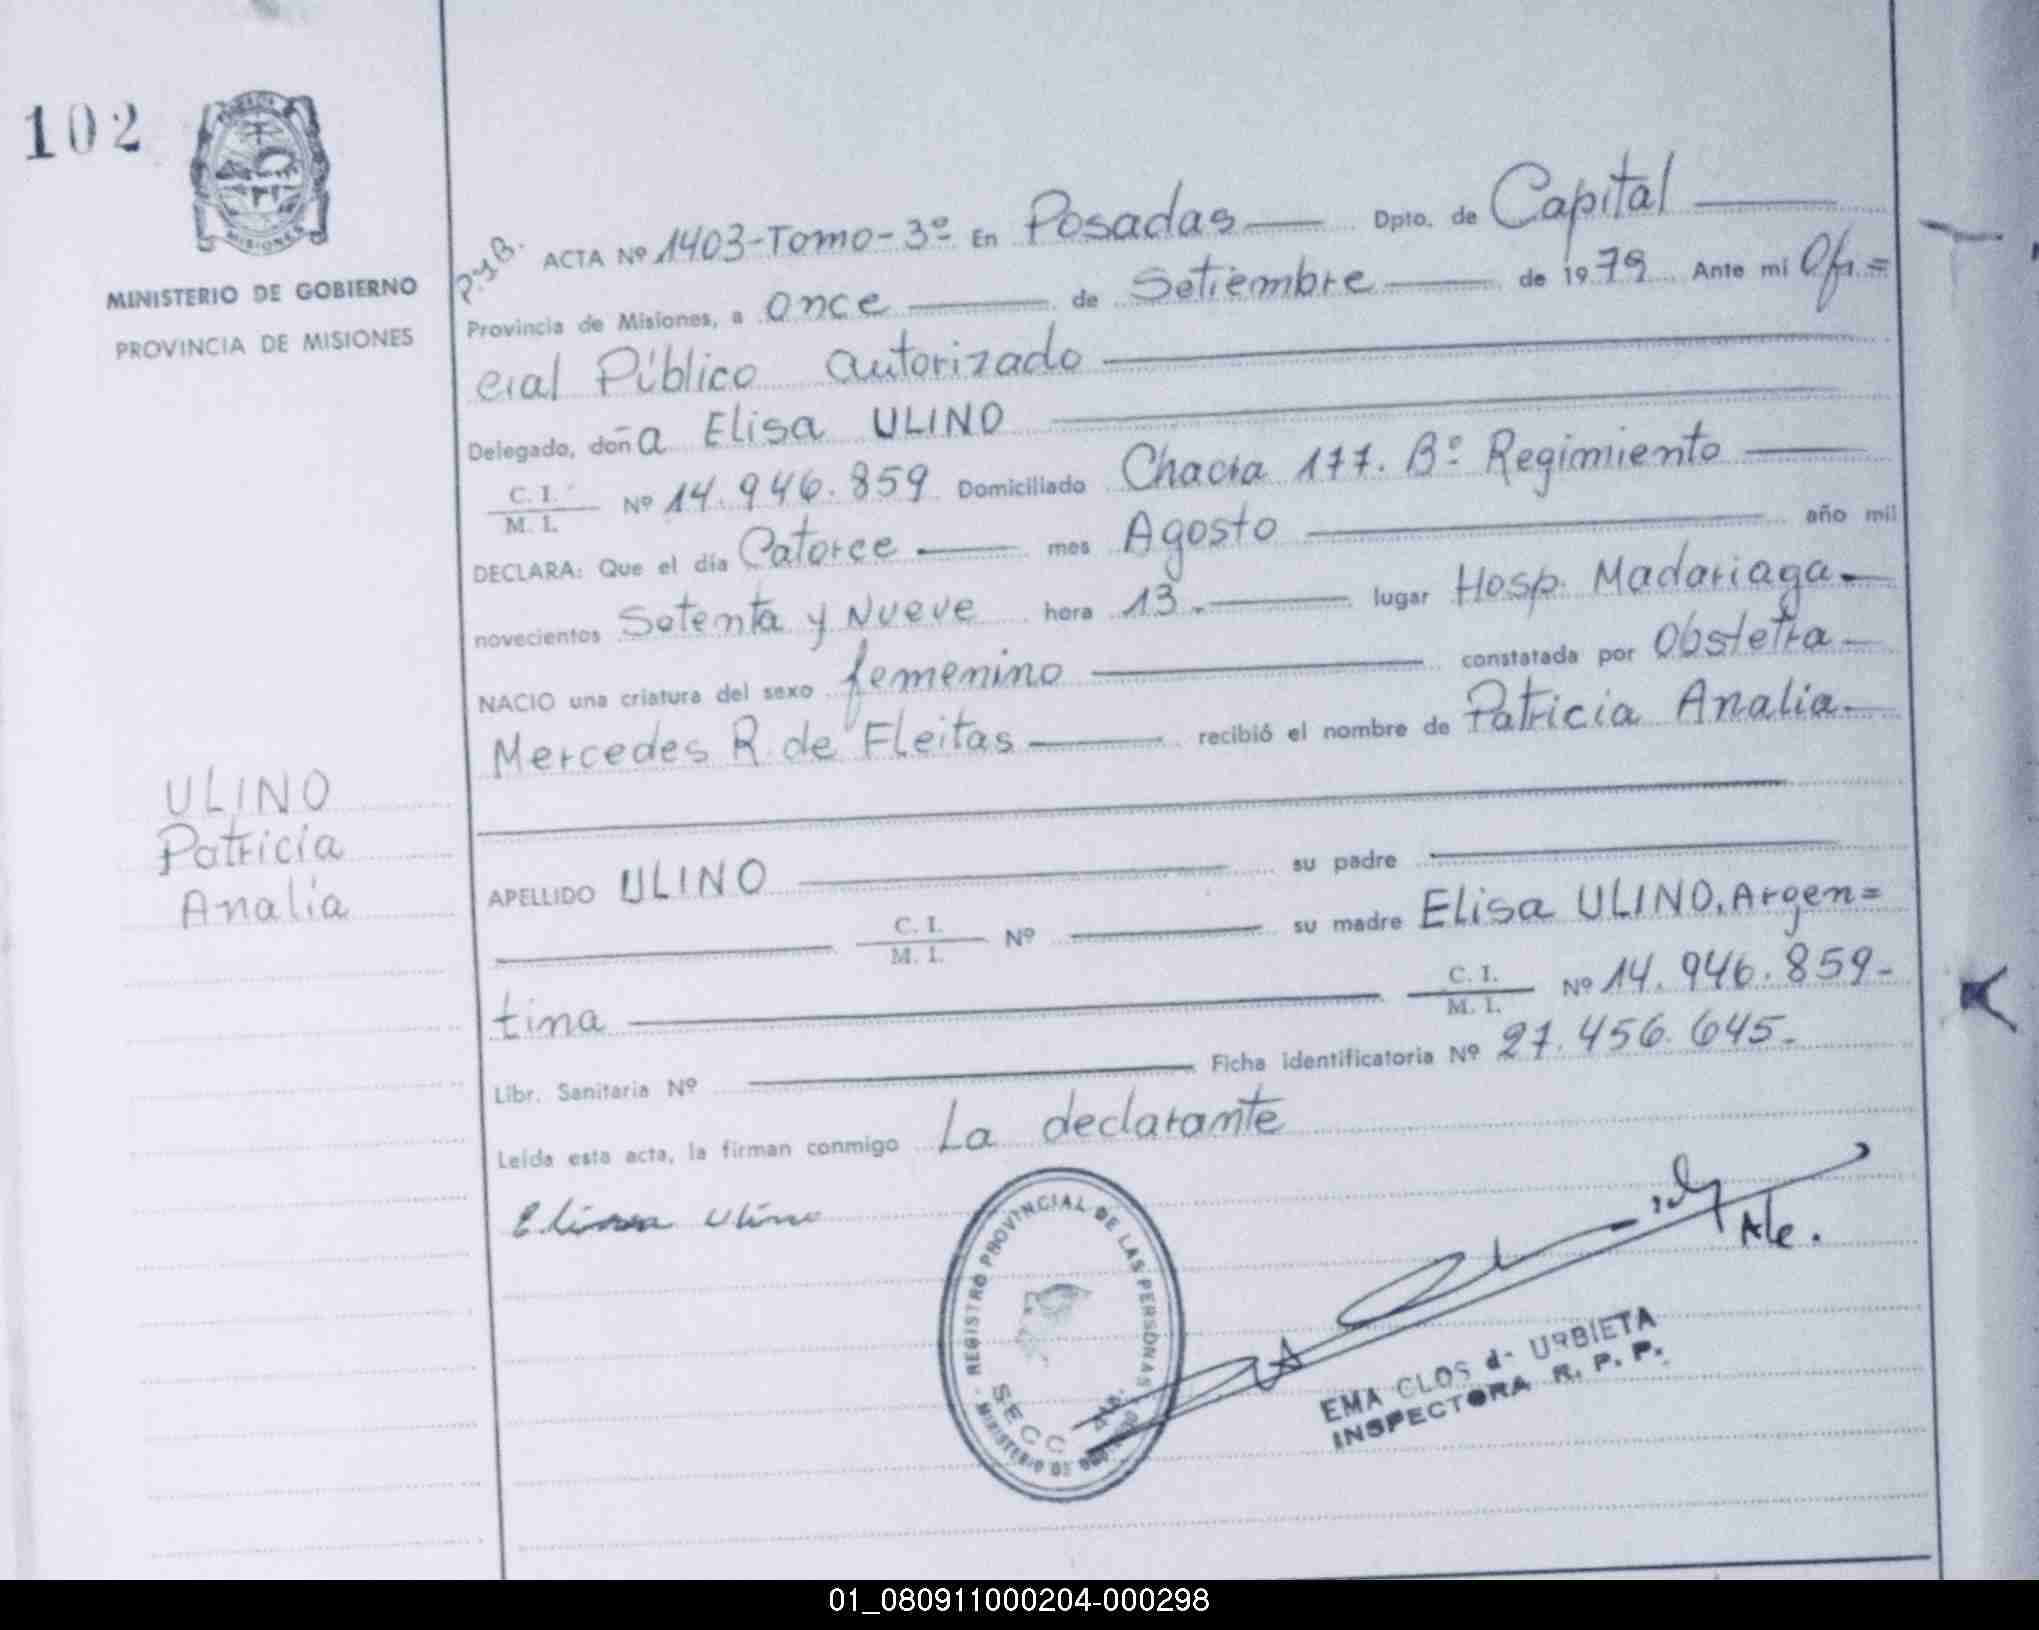 102
MISIONES
MINISTERIO DE GOBIERNO
PROVINCIA DE MISIONES
P.y B.
ACTA Nº 1403-Tomo-3º En Posadas Dpto. de Capital
Provincia de Misiones, a once de Setiembre de 1979 Ante mi Ofi=
cial Público autorizado
Delegado, doña Elisa ULINO
C. I. / M. I. Nº 14.946.859 Domiciliado Chacra 177. Bº Regimiento
DECLARA: Que el día Catorce mes Agosto año mil
novecientos Setenta y Nueve hora 13.- lugar Hosp. Madariaga
NACIO una criatura del sexo femenino constatada por Obstetra
Mercedes R. de Fleitas recibió el nombre de Patricia Analia
ULINO
Patricia
Analia
APELLIDO ULINO su padre
C. I. / M. I. Nº su madre Elisa ULINO, Argen=
tina C. I. / M. I. Nº 14.946.859-
Libr. Sanitaria Nº Ficha identificatoria Nº 27.456.645-
Leída esta acta, la firman conmigo La declarante
Ulino
REGISTRO PROVINCIAL DE LAS PERSONAS
SECC
MINISTERIO DE GOBIERNO
EMA CLOS de URBIETA
INSPECTORA R. P. P.
01_080911000204-000298